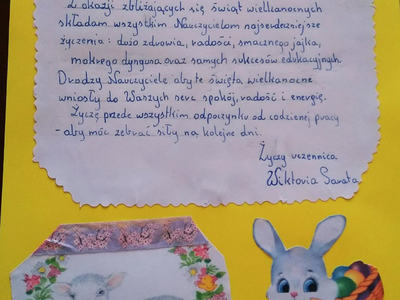 Z okazji zbliżających się świąt wielkanocnych
składam wszystkim Nauczycielom najserdeczniejsze
życzenia: dużo zdrowia, radości, smacznego jajka,
mokrego dyngusa oraz samych sukcesów edukacyjnych.
Drodzy Nauczyciele aby te święta wielkanocne
wniosły do Waszych serc spokój, radość i energię.
Życzę przede wszystkim odpoczynku od codzienej pracy
- aby móc zebrać siły na kolejne dni.
Życzy uczennica
Wiktoria